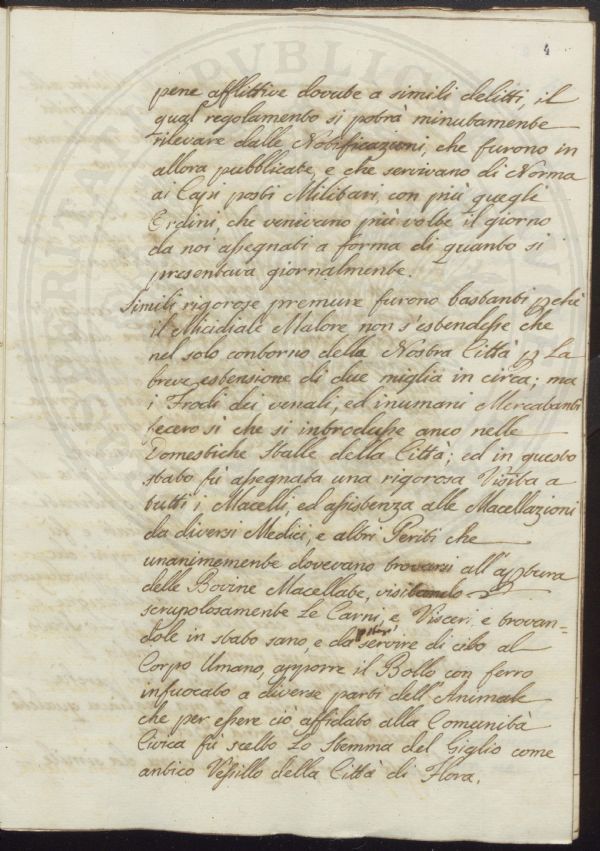 4
pene afflittive dovute a simili delitti, il
qual regolamento si potrà minutamente
rilevare dalle Notificazioni, che furono in
allora pubblicate, e che servivano di Norma
ai Capi posti Militari, con più quegli
Ordini, che venivano più volte il giorno
da noi assegnati a forma di quanto si
presentava giornalmente.
Simili rigorose premure furono bastanti pchè
il Micidiale Malore non s'estendesse che
nel solo contorno della Nostra Città p La
breve estensione di due miglia in circa; ma
i Frodi dei venali, ed inumani Mercatanti
fecero si che si introdusse anco nelle
Domestiche Stalle della Città; ed in questo
stato fù assegnata una rigorosa Visita a
tutti i Macelli, ed assistenza alle Macellazioni
da diversi Medici, e altri Periti che
unanimemente dovevano trovarsi all'aptura
delle Bovine Macellate, visitando
scrupolosamente Le Carni, e Visceri, e trovan=
dole in stato sano, e da poter servire di cibo al
Corpo Umano, apporre il Bollo con ferro
infuocato a diverse parti dell'Animale
che per essere ciò affidato alla Comunità
Civica fù scelto Lo Stemma del Giglio come
antico Vessillo della Città di Flora.